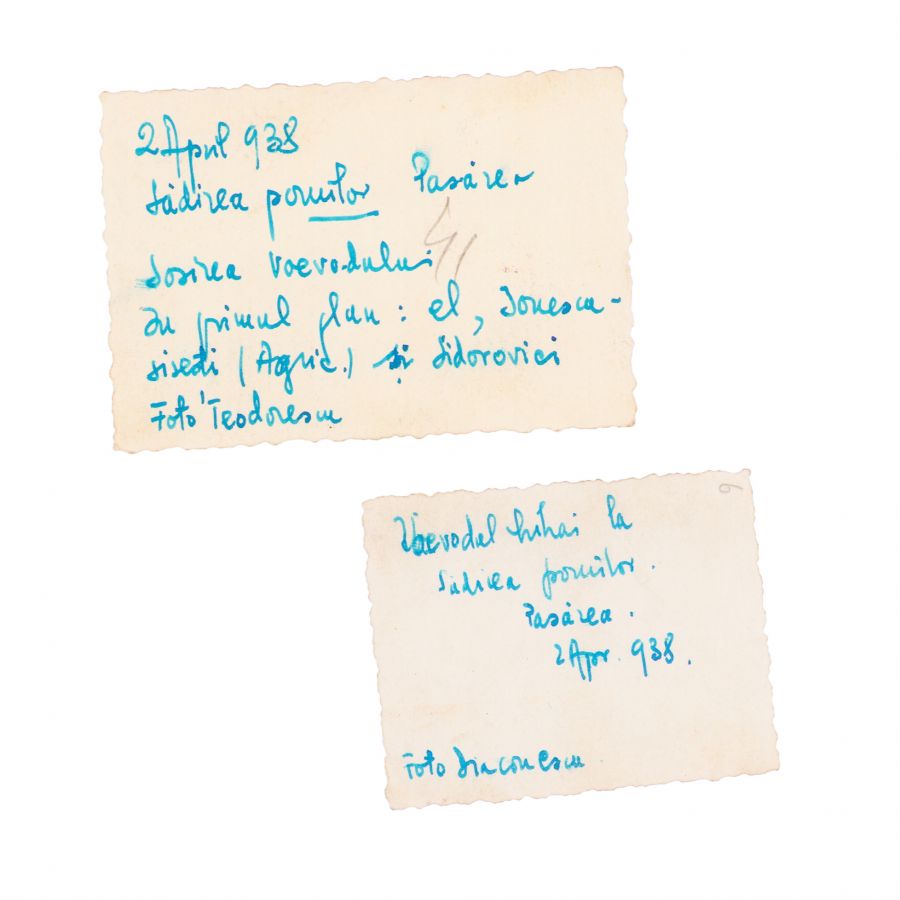 2 April 938
Sădirea pomilor Pasărea
Sosirea Voevodului
În primul plan: el, Ionescu-
Sisești (Agric.) și Sidorovici
Foto Teodorescu
Voevodul Mihai la
Sădirea pomilor.
Pasărea.
2 Apr. 938.
Foto Diaconescu
9